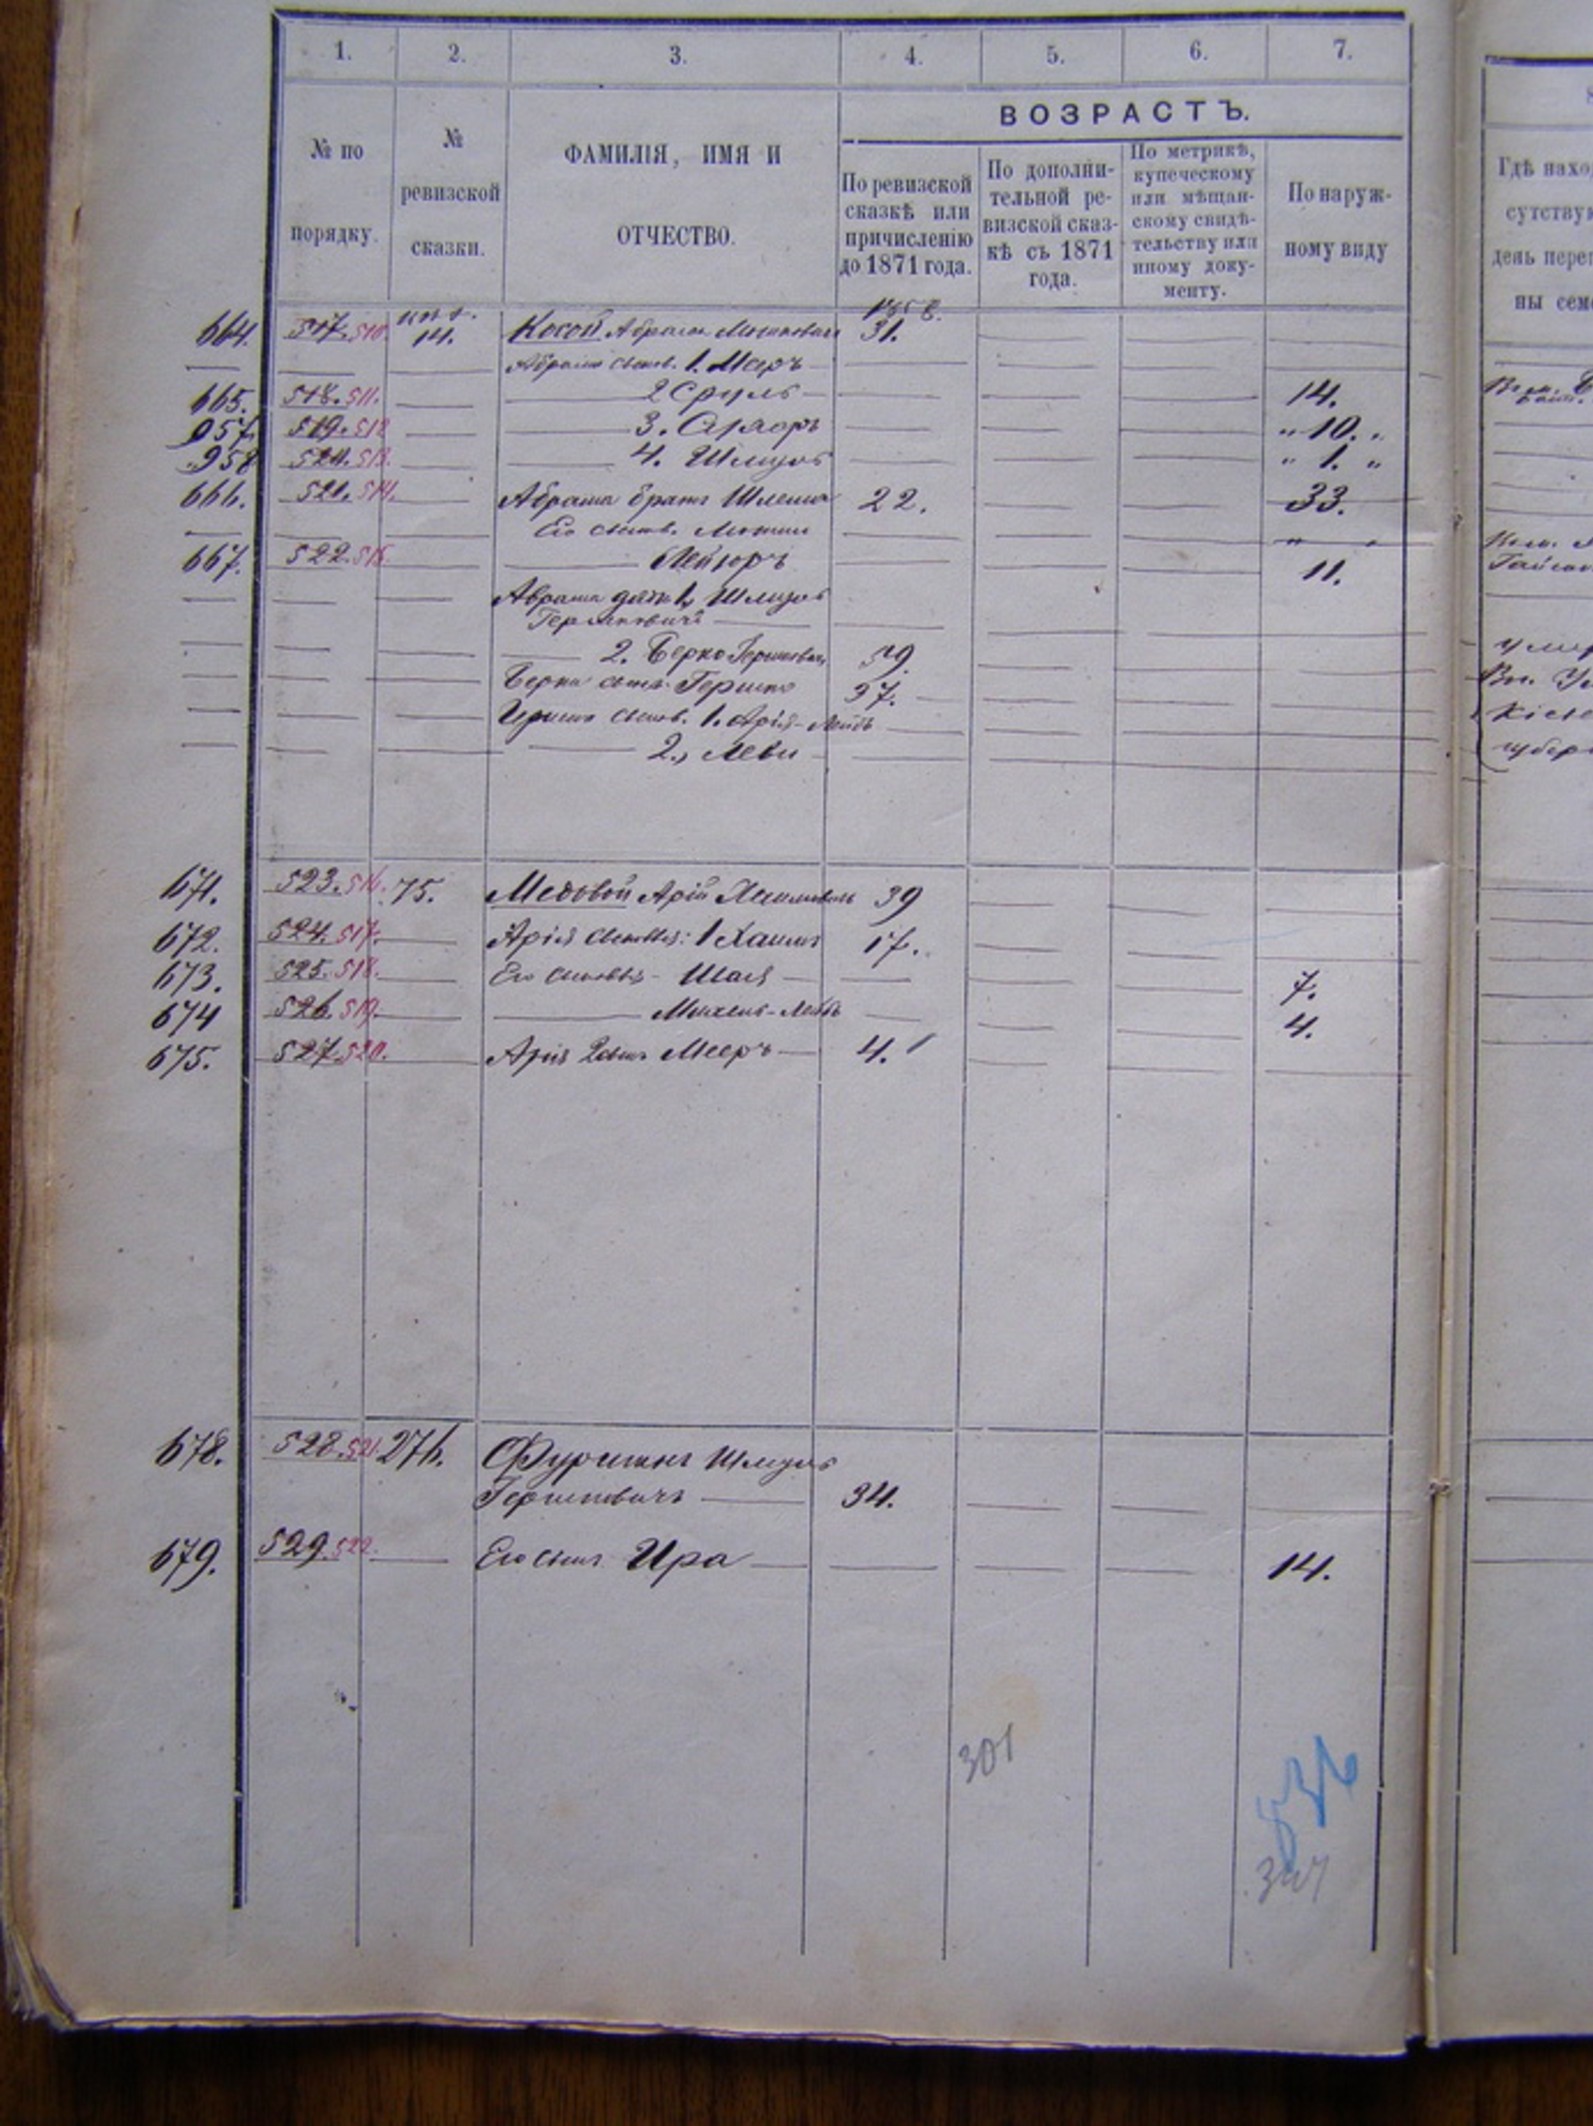 1. 2. 3. 4. 5. 6. 7.
№ по порядку.
№ ревизской сказки.
ФАМИЛІЯ, ИМЯ И
ОТЧЕСТВО.
ВОЗРАСТЪ.
По ревизской
сказкѣ или
причисленію
до 1871 года.
По дополни-
тельной ре-
визской сказ-
кѣ съ 1871
года.
По метрикѣ,
купеческому
или мѣщан-
скому свидѣ-
тельству или
иному доку-
менту.
По наруж-
ному виду
Гдѣ наход
сутствую
день переп
ны сем
664. 517. 510. 14. Косой Абрамъ Мошковичъ 31.
Абрама сынов. 1. Меръ
665. 518. 511. 2 Сруль 14.
957. 519. 512 3. „ 10. „
958 520. 513. 4. Шмуль „ 1. „
666. 521. 514. Абрама братъ Шлема 22. 33.
Его сынов. Мошко
667. 522. 515. Лейзоръ 11.
Абрама дяди 1, Шмуль
Гершковичъ
2. Берко Гершкович 59.
Берки сынъ Гершко 37.
Гершка сынов. 1. Арій-Лейбъ
2., Леви
671. 523. 516. 75. Медовой Арій Хаимовичъ 39
672. 524. 517. Арія сыновья: 1 Хаимъ 17.
673. 525. 518. Его сыновья - Шая 7.
674 526. 519. Михель-Лейбъ 4.
675. 527. 520. Арія 2 сынъ Мееръ 4.
678. 528. 521. 276. Фурманъ Шмуль
Гершковичъ 34.
679. 529. 522. Его сынъ Ира 14.
301
536
347